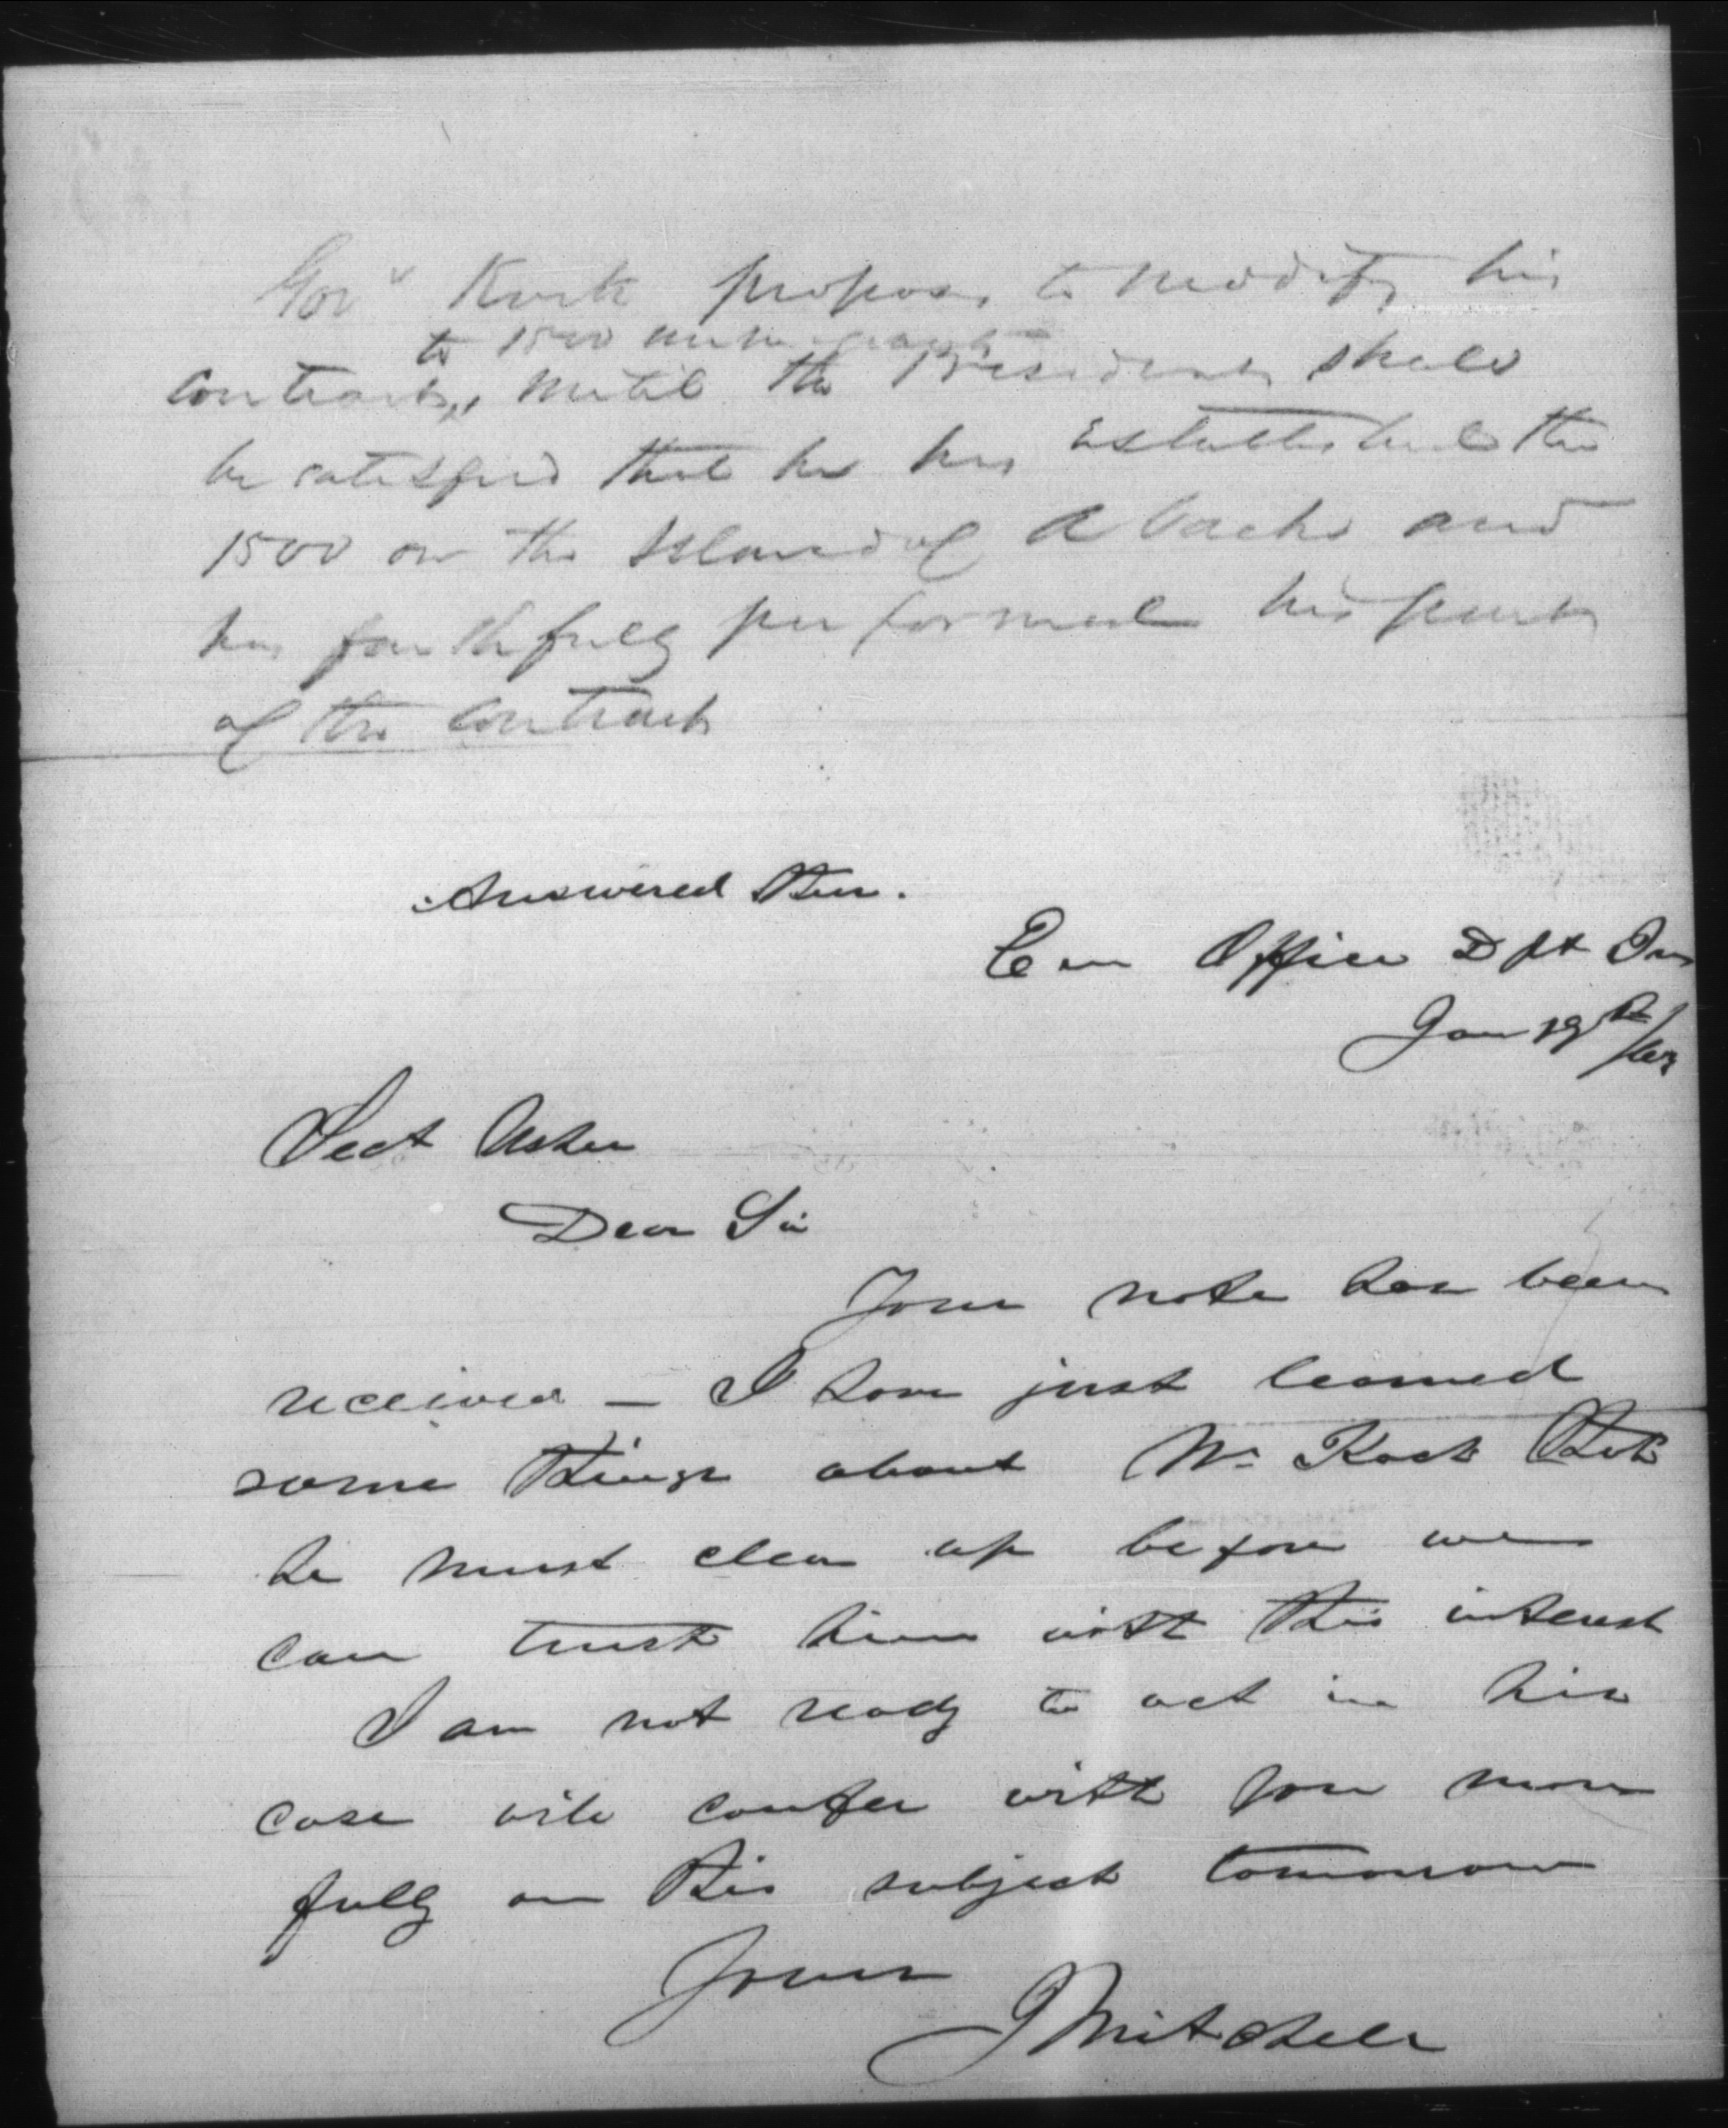 Govr Kock proposes to modify his
to 1500 emigrants
contract, until the President shall
be satisfied that he has established the
1500 on the Island of A Vache and
has faithfully performed his part
of the contract
Answered thus.
Em Office Dpt Int
Jan 19th /63
Sect Usher
Dear Sir
Your note has been
received — I have just learned
some things about Mr Kock that
he must clear up before we
can trust him with this interest
I am not ready to act in his
case will confer with you more
fully on this subject tomorrow
Yours
J Mitchell